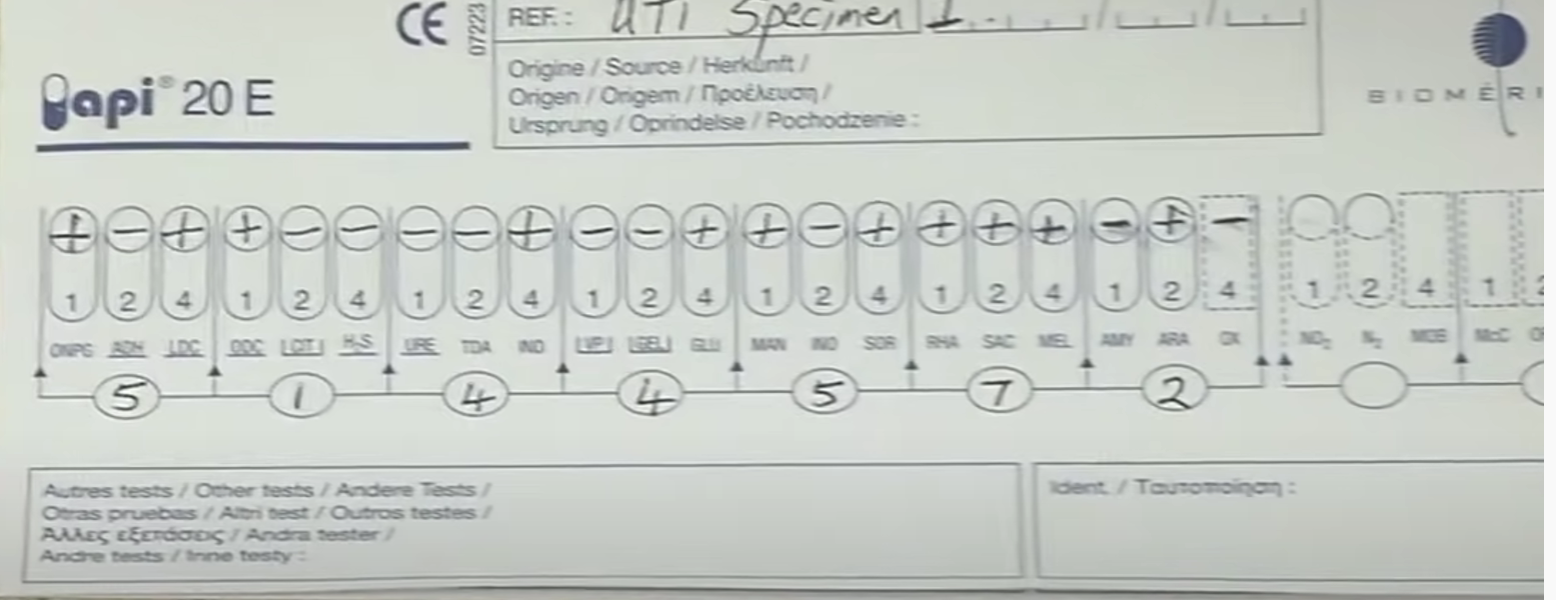 CE 07223
REF. : UTI Specimen 1
api® 20 E
Origine / Source / Herkunft /
Origen / Origem / Προέλευση /
Ursprung / Oprindelse / Pochodzenie :
BIOMÉRI
+ − + + − − − − + − − + + − + + + + − + −
1 2 4 1 2 4 1 2 4 1 2 4 1 2 4 1 2 4 1 2 4 1 2 4 1 2
ONPG ADH LDC ODC |CIT| H₂S URE TDA IND |VP| |GEL| GLU MAN INO SOR RHA SAC MEL AMY ARA OX NO₂ N₂ MOB McC
5 1 4 4 5 7 2
Autres tests / Other tests / Andere Tests /
Otras pruebas / Altri test / Outros testes /
Άλλες εξετάσεις / Andra tester /
Andre tests / Inne testy :
Ident. / Ταυτοποίηση :